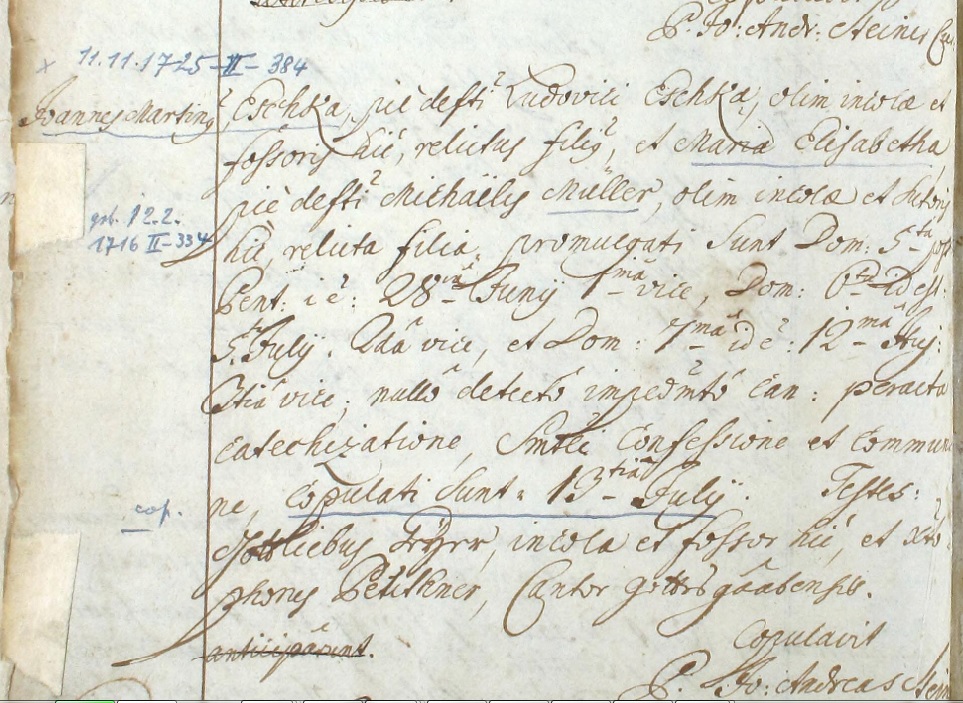 P. Jo: Andr: Meiner
x 11.11.1725-II-384
Joannes Martinꝰ Eschka, piè defti Ludovici Eschka, olim incolæ et
fossoris hic, relictus filiꝰ, et Maria Elisabetha
piè defti Michaëlis Müller, olim incolæ et sutoris
geb. 12.2.
1716 II-334
hic, relicta filia, promulgati sunt Dom: 5ta post
Pent: i e: 28va Junij 1ma vice, Dom: 6ta id est
5ta Julij. 2da vice, et Dom: 7ma id e: 12ma huj:
3tia vice, nullo detecto impedmto can: peracta
catechizatione, Smtli Confessione et commun
cop.
ne, copulati sunt 13tia Julij. Testes:
Gottliebus, incola et fossor hic, et Xto
phorus, Cantor Gottsgaabensis.
anticiparunt.
Copulavit
P. Jo: Andreas Mein